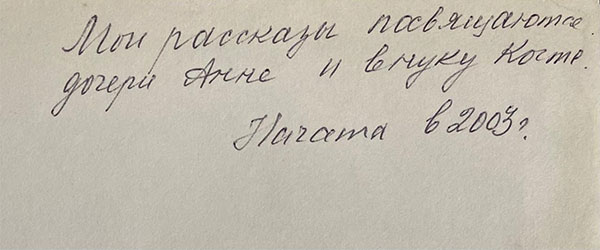 Мои рассказы посвящаются
дочери Анне и внуку Косте.
Начата в 2003г.